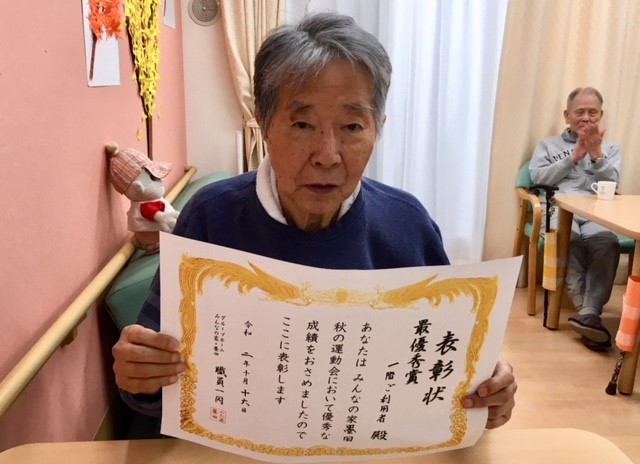 表彰状
最優秀賞
一階ご利用者 殿
あなたは みんなの家墨田
秋の運動会において優秀な
成績をおさめましたので
ここに表彰します
令和 二年十月十六日
グループホーム
みんなの家・墨田
職員一同